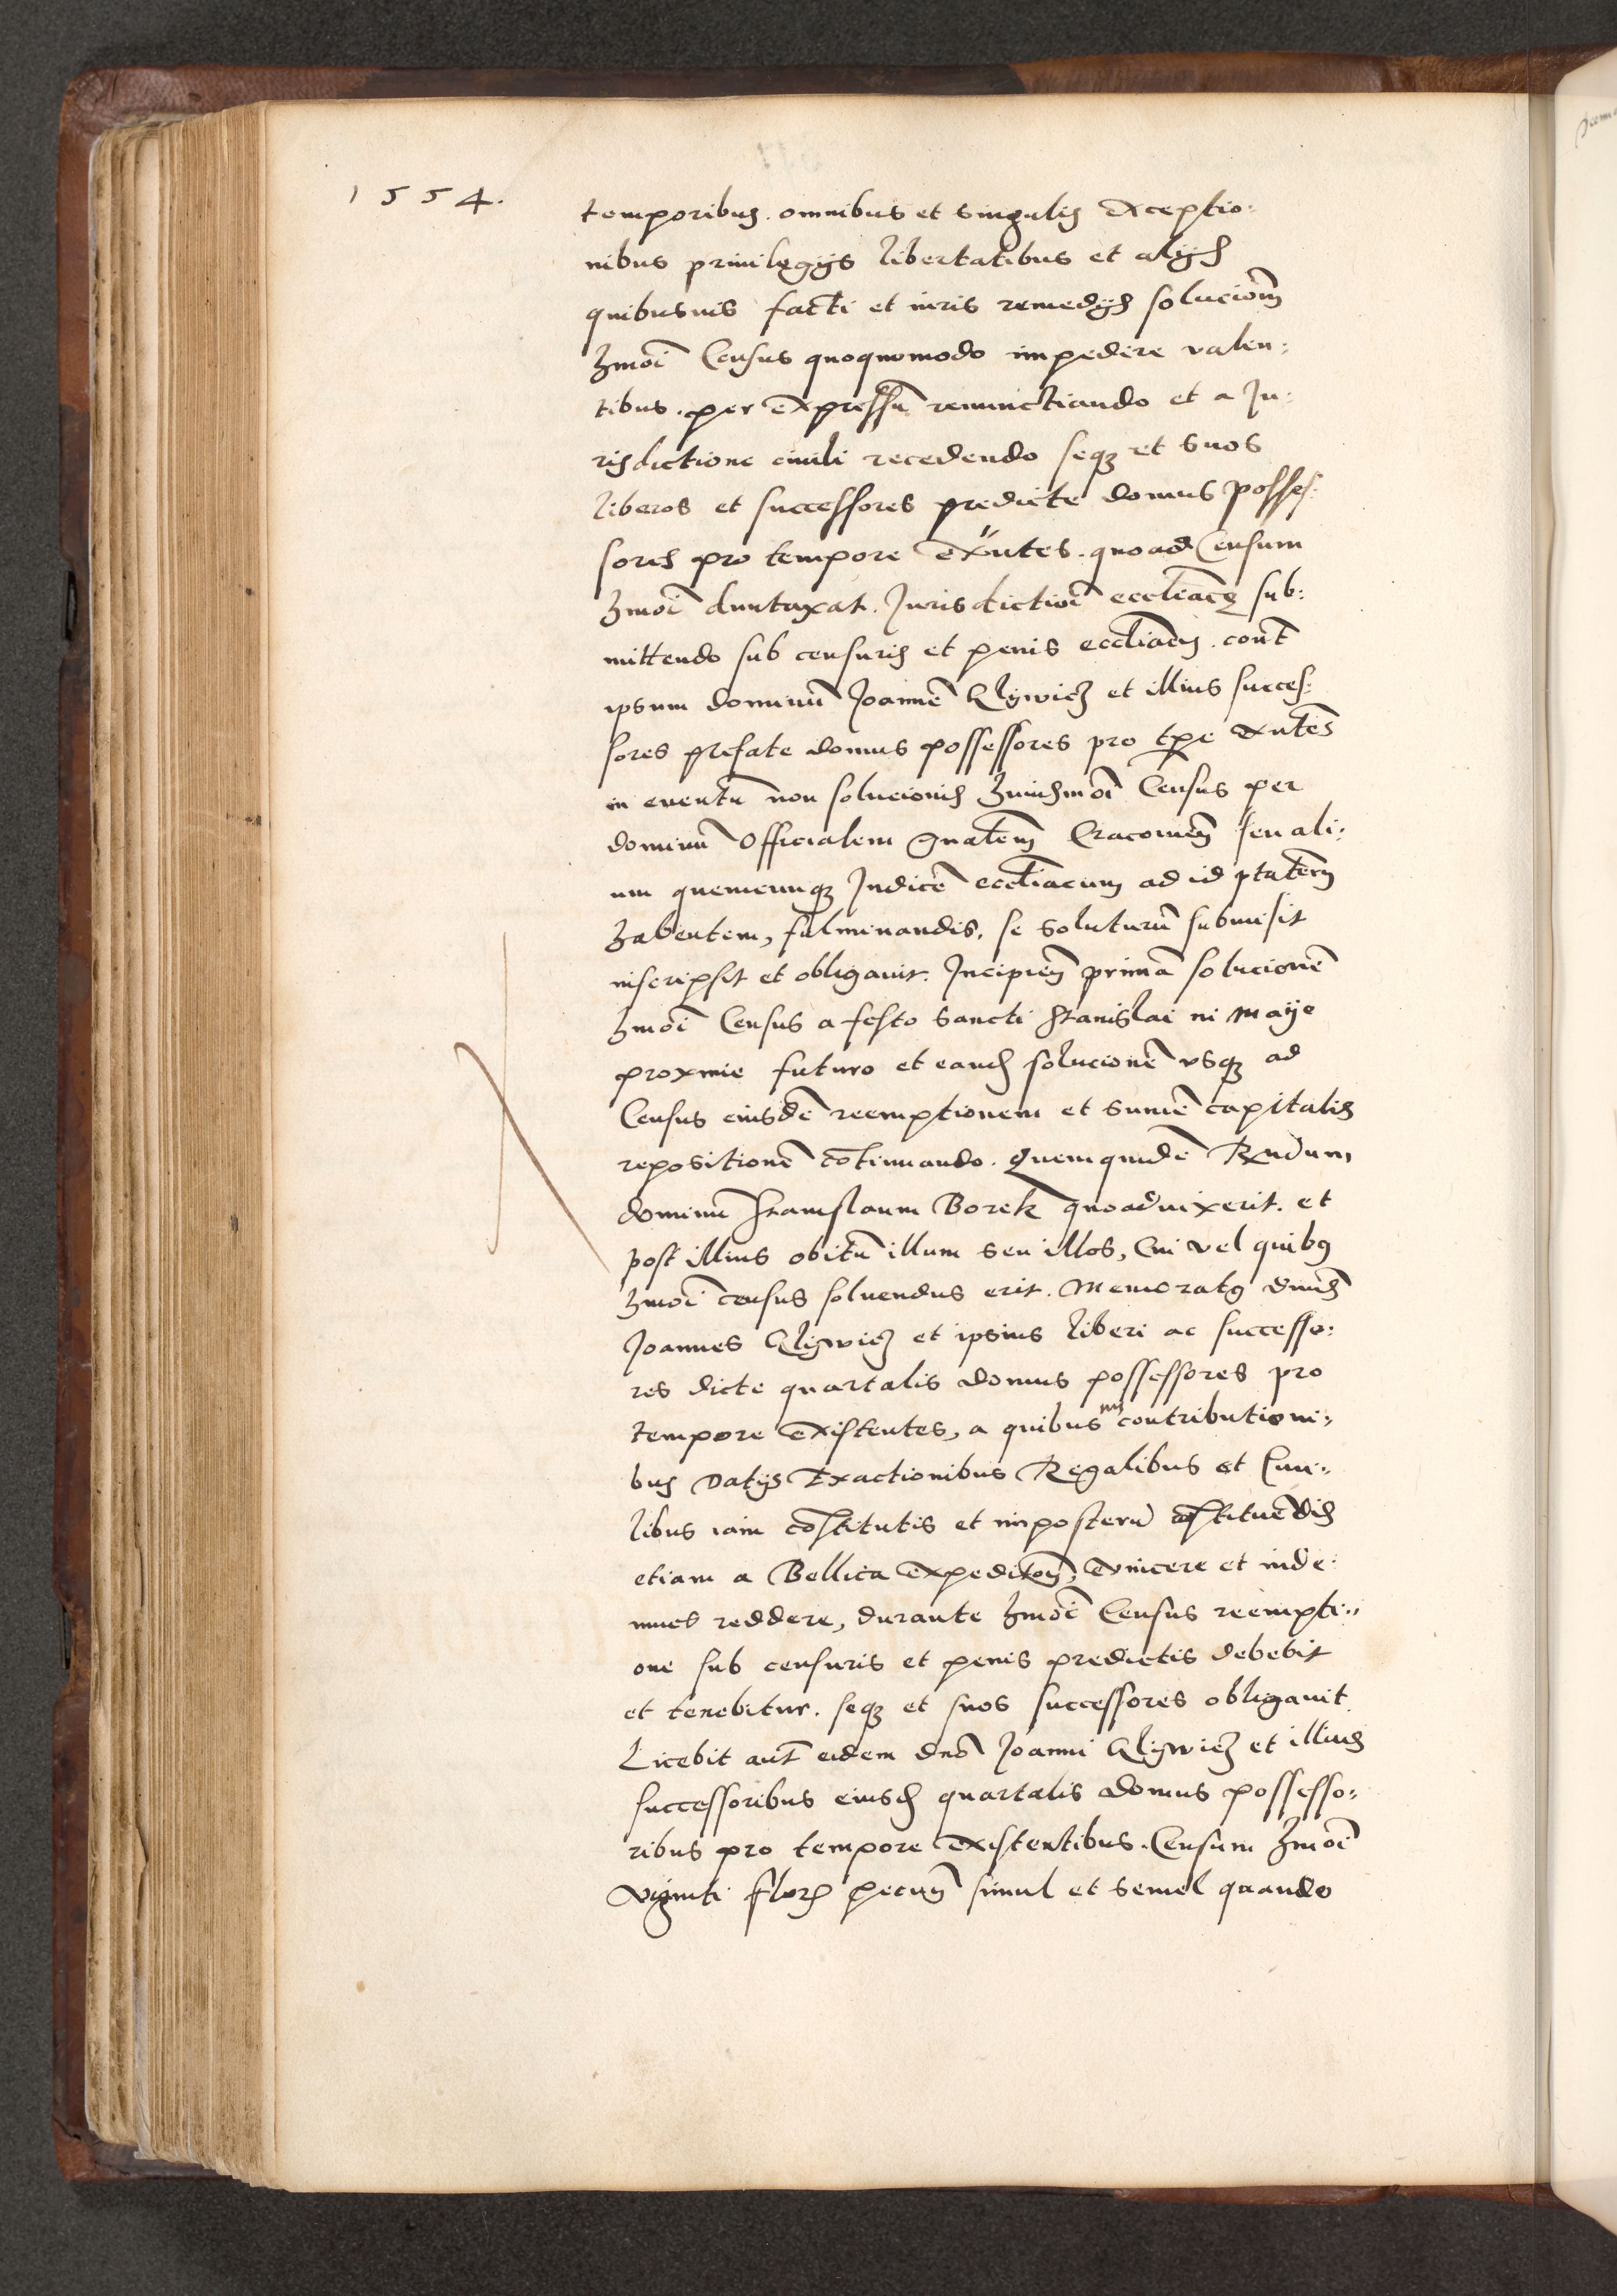 1554.
temporibus. omnibus et singulis exceptio:
nibus priuilegijs libertatibus et alijs
quibusuis facti et iuris remedijs solucionẽ
hmõi Census quoquomodo impedere valen:
tibus. per expressũ renunctiando et a Ju:
risdictione ciuili recedendo seqʒ et suos
liberos et successores predicte domus posses:
sores pro tempore exñtes. quoad Censum
hmõi duntaxat. Jurisdictioĩ eccliãcę sub:
mittendo sub censuris et penis eccliãcis. cont̃
ipsum dominũ Joannẽ Glywicz et illius succes:
sores prefate domus possessores pro tp̃e exñtes
in euentũ non solucionis huiusmõi Census per
dominũ Officialem gñalem Cracouieñ seu ali:
um quemcunqʒ Judicẽ eccliãcum ad id ptãtem
habentem, fulminandis, se soluturũ submisit
inscripsit et obligauit. Incipieñ primã solucionẽ
hmõi Census a festo Sancti Stanislai in Maye
proxime futuro et eand solucionẽ vsqʒ ad
Census eiusdẽ reemptionem et sumẽ capitalis
repositionẽ cõtinuando. Quemquidẽ Rndum
dominũ Stanislaum Borek quoaduixerit. et
post illius obitũ illum seu illos, Cui vel quibꝰ
hmõi census soluendus erit. Memoratꝰ dñus
Joannes Glywicz et ipsius liberi ac successo:
res dicte quartalis domus possessores pro
tempore existentes, a quibusuis contributioni:
bus Datijs Exactionibus Regalibus et Ciui:
libus iam cõstitutis et imposterũ cõstituẽdis
etiam a Bellica expeditioñ, euincere et inde:
mnes reddere, durante hmõi Census reempti:
one sub censuris et penis predictis debebit
et tenebitur. seqʒ et suos successores obligauit
Licebit aut̃ eidem dnõ Joanni Glywicz et illius
successoribus eiusd quartalis domus possesso:
ribus pro tempore existentibus. Censum hmõi
viginti flor pecuñ simul et semel quando